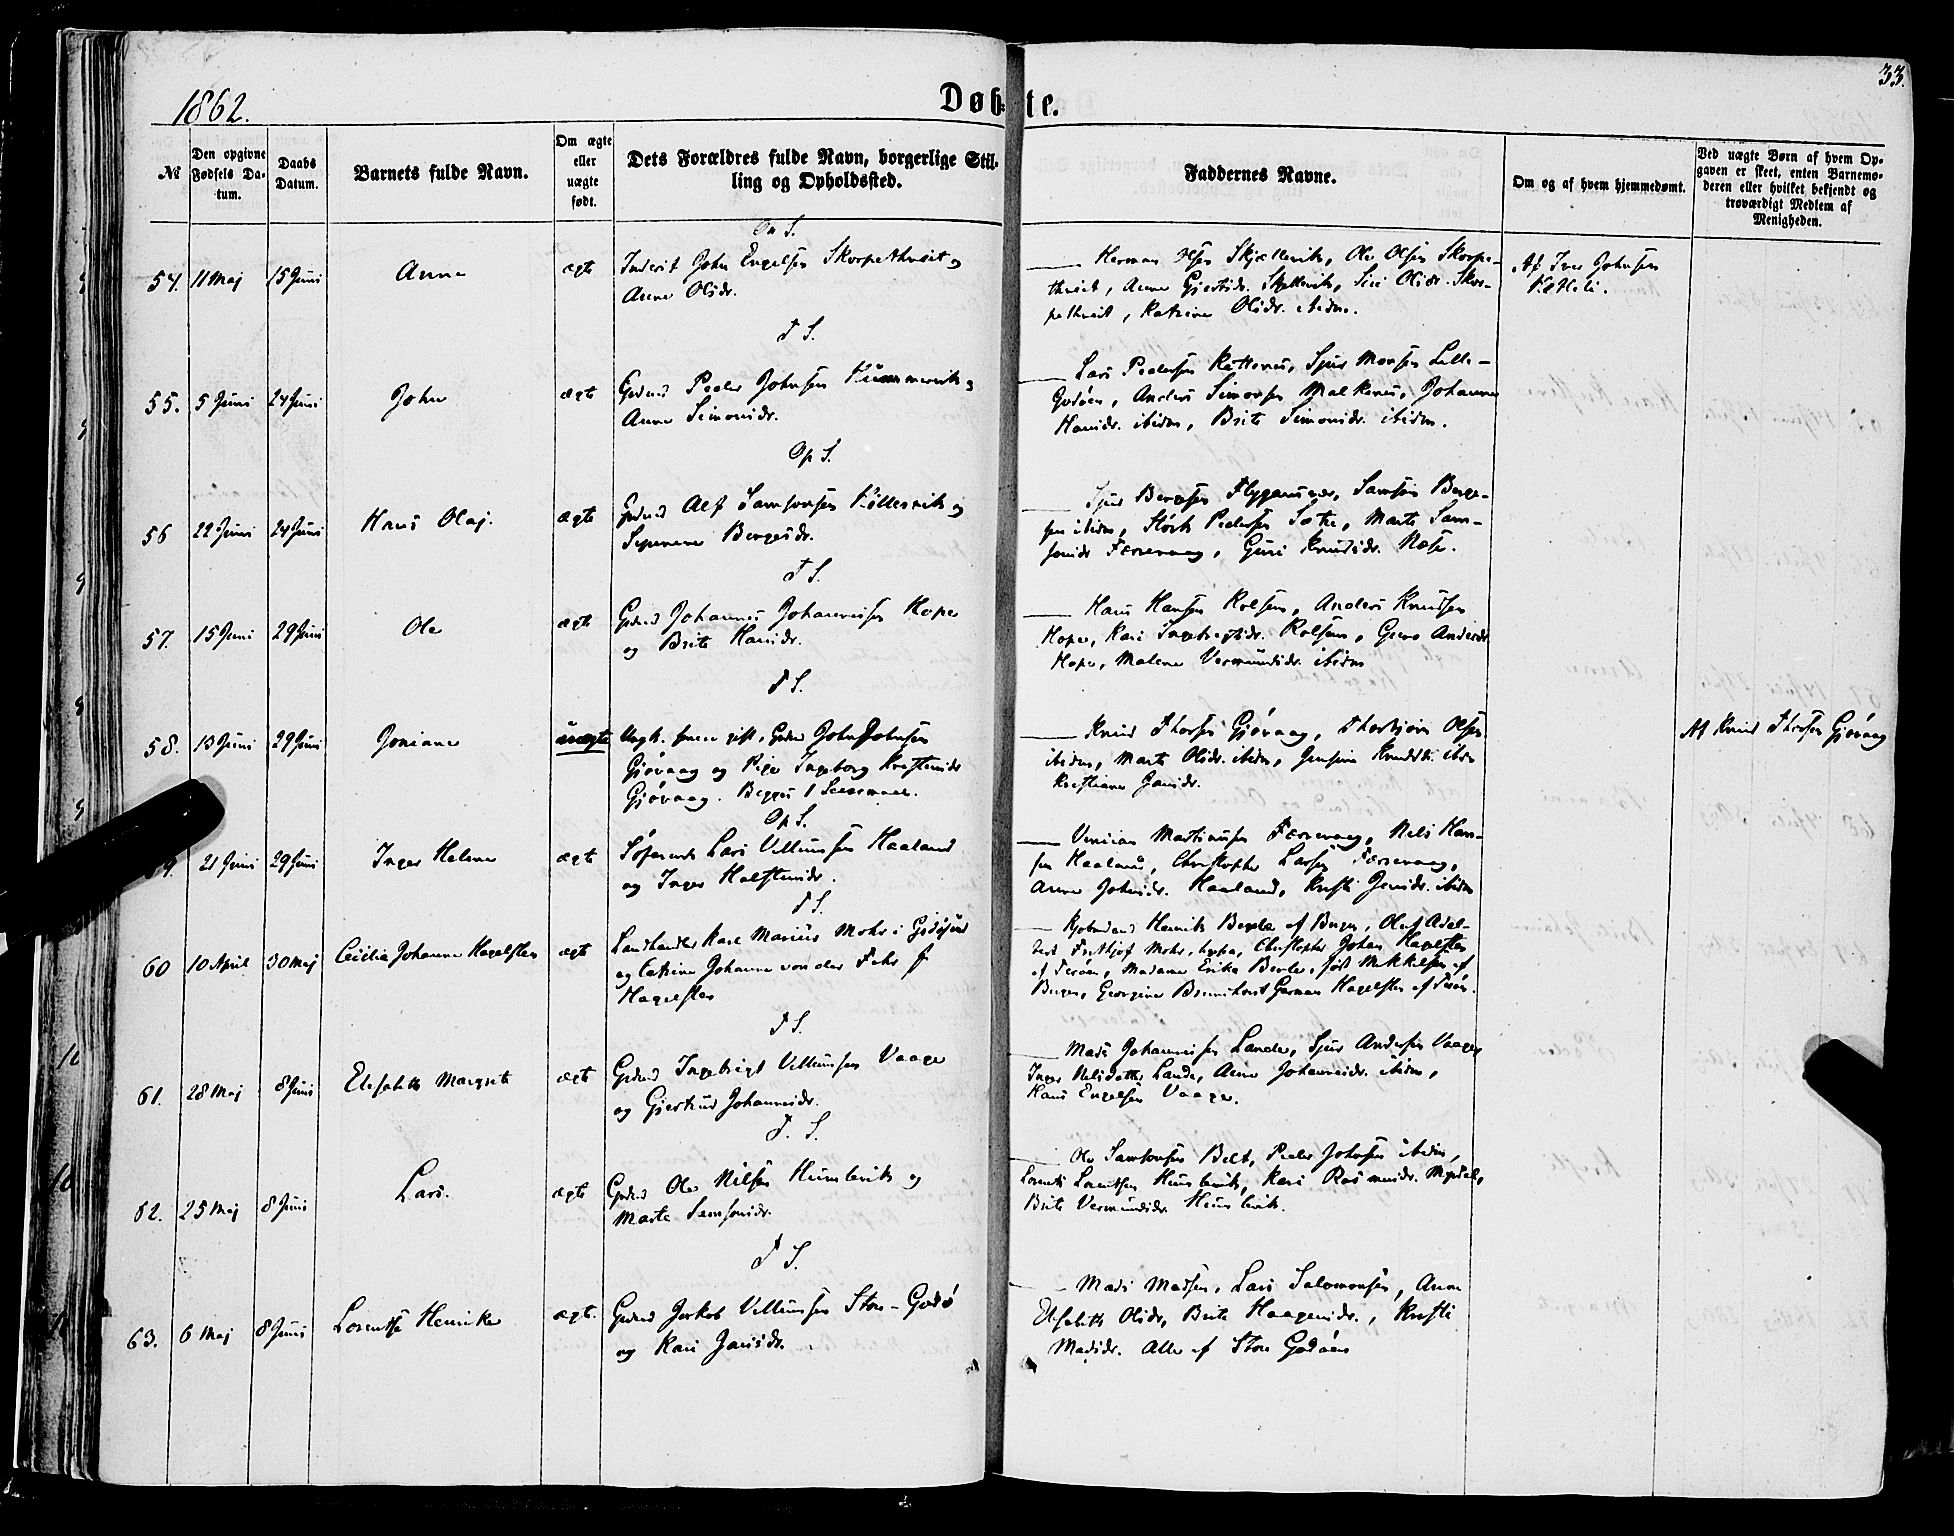 33.
1862.
Døbte.
№
Den opgivne Fødsels Datum.
Daabs Datum.
Barnets fulde Navn.
Om ægte eller uægte født.
Dets Forældres fulde Navn, borgerlige Stilling og Opholdssted.
Faddernes Navne.
Om og af hvem hjemmedøbt.
Ved uægte Børn af hvem Opgaven er skeet, enten Barnemoderen eller hvilket bekjendt og troværdigt Medlem af Menigheden.
54. 11 Maj 15 Juni Anne ægte
Inderst John Engelsen Skorpethveit og
Anne Olsdr.
Herman Olsen Skjellevik, Ole Olsen Skorpe-
thveit, Anne Gjertsdr. Skjellevik, Siri Olsdr. Skor-
pethveit, Katrine Olsdr. ibidm.
Af Iver Johnsen
T. S.
55. 5 Juni 24 Juni John ægt
Grdmd Peder Johnsen og
Anne Simonsdr.
Lars Pedersen Sjur Monsen Lille-
Godøen, Anders Simonsen Malkenes, Johanne
Hansdr. ibidm, Brite Simonsdr. ibidm.
Op S.
56 22 Juni 24 Juni Hans Olaj. ægte
Grdmd Alf Samsonsen og
Bergesdr.
Sjur Bergesen Samson Berge-
sen ibidm, Pedersen Marte Sam-
sonsdr Færevaag, Guri Knudsdr. Næse.
T S.
57. 15 Juni 29 Juni Ole ægte
Grdmd Johannes Johannessen Hope
og Brite Hansdr.
Hans Hansen Rolfsen, Anders Knudsen
Hope, Kari Ingebrigtsdr. Rolfsen, Andersdr
Hope, Malene Vermundsdr. ibidm
T S.
58. 13 Juni 29 Juni Joniane uægte
Ungk. gift, Grdmd John Johnsen
Gjøvaag og Pige Ingeborg Kristensdr
Gjøvaag. Begges 1 Leiermaal.
Knud Thorsen Gjøvaag, Thorbjørn Olsen
ibidm, Marte Olsdr. ibidm, Knudsdr. ibidm
Kristiane Jansdr.
Af Knud Thorsen Gjøvaag
Op S.
21 Juni 29 Juni Inger Helene ægte
Lars Villumsen Haaland
og Inger Halstensdr.
Martinusen Færevaag, Nils Han-
sen Haaland, Christopher Larsen Færevaag,
Anne Johnsdr. Haaland, Kristi Jensdr. ibidm
T S.
60 10 April 30 Maj Cecilia Johanne Hagelsten ægte
Landhandler Karl Marius Mohr i Godøsund
og Catrine Johanne von der Fehr f
Hagelsten
Kjøbmand Henrik Berle af Bergen, Oluf Adel-
bert Frithjof Mohr, Christopher Johan Hagelsten
af Terøen, Madame Erika Berle, født Mikkelsen af
Bergen, Georgine Brunchorst Hagelsten af Terøen.
T S.
61. 28 Maj 8 Juni Elisabeth Margrete ægte
Grdmd Ingebrigt Villumsen Vaage
og Gjertrud Johannesdr.
Mads Johannessen Lande, Sjur Andersen Vaage,
Inger Nilsdatter Lande, Anne Johannesdr. ibidm,
Hans Engelsen Vaage.
T. S.
62. 25 Maj 8 Juni Lars. ægte
Grdmd Ole Nilsen Humlevik og
Marte Samsonsdr.
Ole Samsonsen Belt, Peder Johnsen ibidm,
Lorents Lorentsen Humlevik, Kari Rasmusdr. Mypdal,
Brite Vermundsdr. Humlevik.
T S.
63. 6 Maj 8 Juni Lorentse Henrike ægte.
Grdmd Jakob Villumsen Store-Godø
og Kari Jansdr.
Mads Madsen, Lars Salomonsen, Anne
Elisabeth Olsdr, Brite Haagensdr., Kristi
Madsdr. Alle af Store Godøen